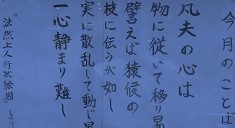 今月のことば
凡夫の心は
物に従いて移り易
譬えば猿猴の
枝に伝うが如し
実に散乱して動じ易
一心静まり難し
『法然上人行状絵図』より